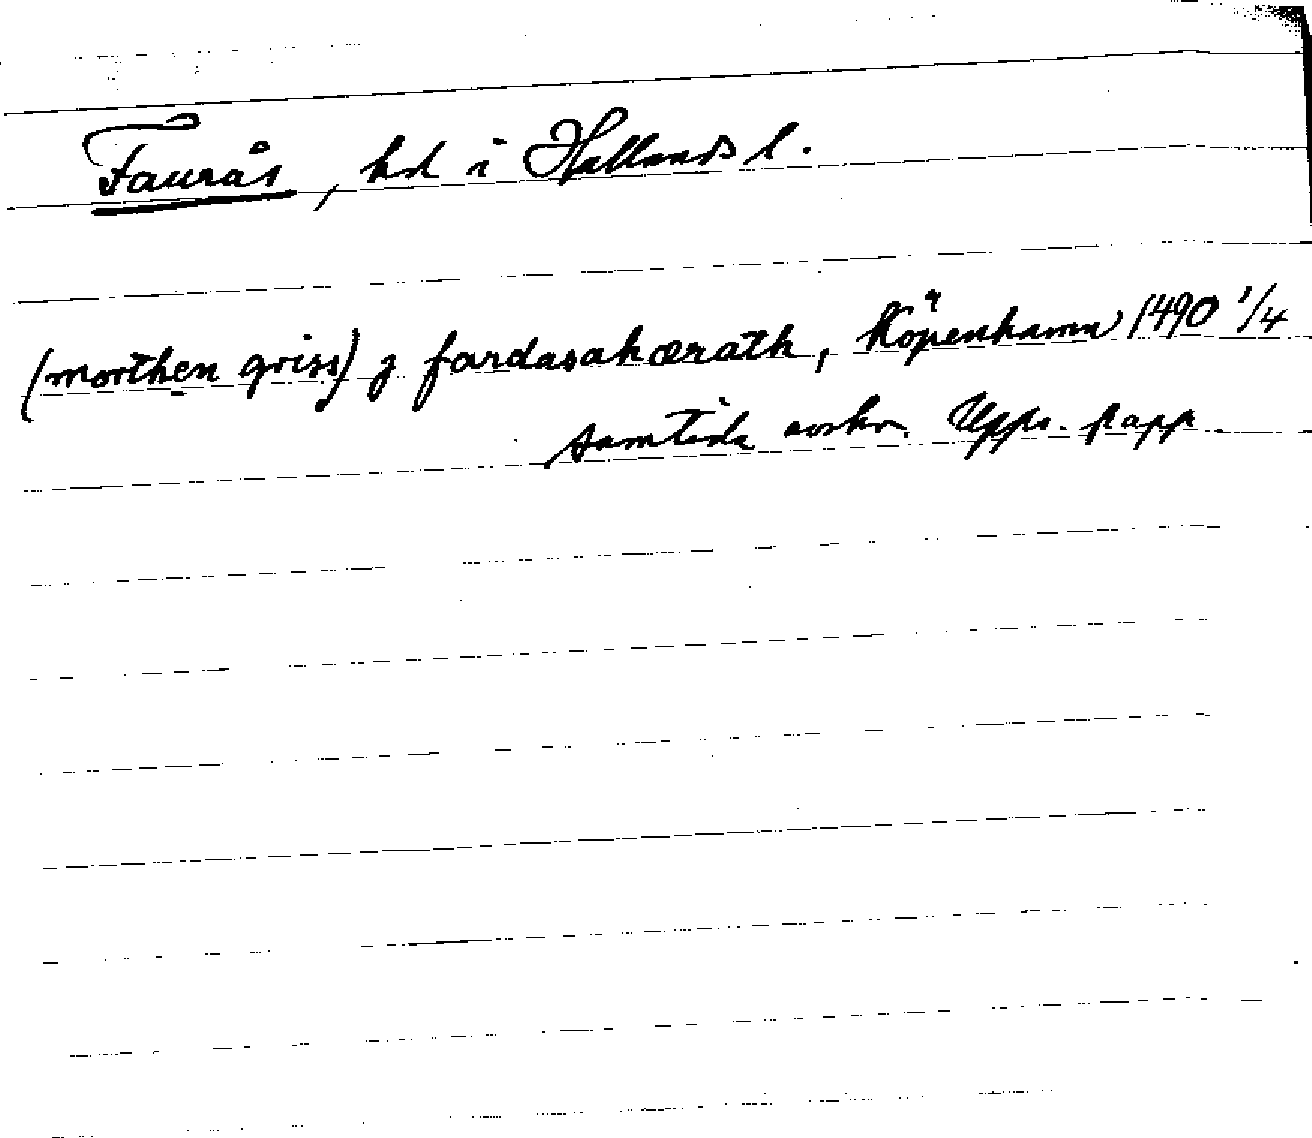 Faurås, hd i Hallands l.
(morthen griss) j fardasahærath, Köpenhamn 1490 1/4
samtida avskr. Upps. papp